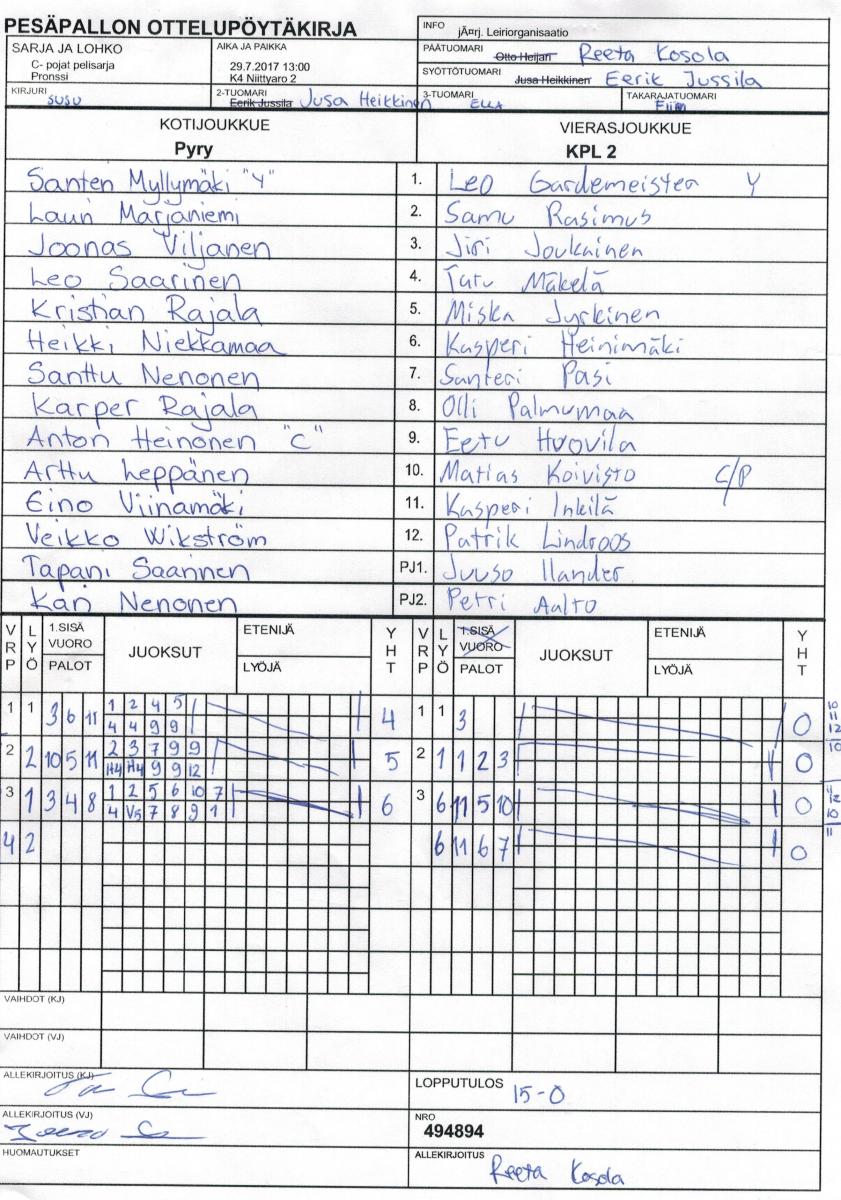 PESÄPALLON OTTELUPÖYTÄKIRJA
INFO jÃ¤rj. Leiriorganisaatio
SARJA JA LOHKO
C- pojat pelisarja
Pronssi
AIKA JA PAIKKA
29.7.2017 13:00
K4 Niittyaro 2
PÄÄTUOMARI Otto Heijari Reeta Kosola
SYÖTTÖTUOMARI Jusa Heikkinen Eerik Jussila
KIRJURI SUSU
2-TUOMARI Eerik Jussila Jusa Heikkinen
3-TUOMARI Ella
TAKARAJATUOMARI
KOTIJOUKKUE
Pyry
VIERASJOUKKUE
KPL 2
Santeri Myllymäki "Y" 1. Leo Gardemeister Y
Lauri Marjaniemi 2. Samu Rasimus
Joonas Viljanen 3. Jiri Joukainen
Leo Saarinen 4. Tatu Mäkelä
Kristian Rajala 5. Miska Jyrkinen
Heikki Niekkamaa 6. Kasperi Heinimäki
Santtu Nenonen 7. Santeri Pasi
Karper Rajala 8. Olli Palmumaa
Anton Heinonen "C" 9. Eetu Huovila
Arttu Leppänen 10. Matias Koivisto C/P
Eino Viinamäki 11. Kasperi Inkilä
Veikko Wikström 12. Patrik Lindroos
Tapani Saarinen PJ1. Juuso Ilander
Kari Nenonen PJ2. Petri Aalto
VRP LYÖ 1.SISÄ VUORO PALOT JUOKSUT ETENIJÄ LYÖJÄ YHT VRP LYÖ 1.SISÄ VUORO PALOT JUOKSUT ETENIJÄ LYÖJÄ YHT
1 1 3 6 11 1 2 4 5 4 1 1 3 0
4 4 9 9
2 2 10 5 11 2 3 7 9 9 5 2 1 1 2 3 0
H4 H4 9 9 12
3 1 3 4 8 1 2 5 6 10 7 6 3 6 11 5 10 0
4 V5 7 8 9 1
4 2 6 11 6 7 0
VAIHDOT (KJ)
VAIHDOT (VJ)
ALLEKIRJOITUS (KJ)
LOPPUTULOS 15-0
ALLEKIRJOITUS (VJ)
NRO
494894
HUOMAUTUKSET
ALLEKIRJOITUS Reeta Kosola